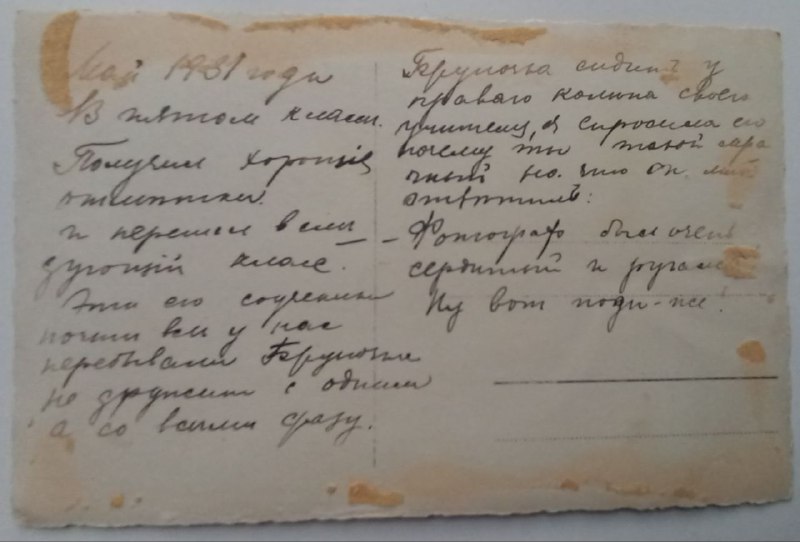 Май 1931 года
В пятом классе.
Получил хорошiя
отметки.
и перешел в слѣ
дующiй класс.
Это его соученики
почти все у нас
перебывали Бруночка
не дружит с одним
а со всеми сразу.
Бруночка сидитъ у
праваго колѣна своего
учителя, я спросила его
почему ты такой мра
чный на что он мнѣ
ответилъ:
– Фотографъ был очень
сердитый и ругался
Ну вот поди-же!